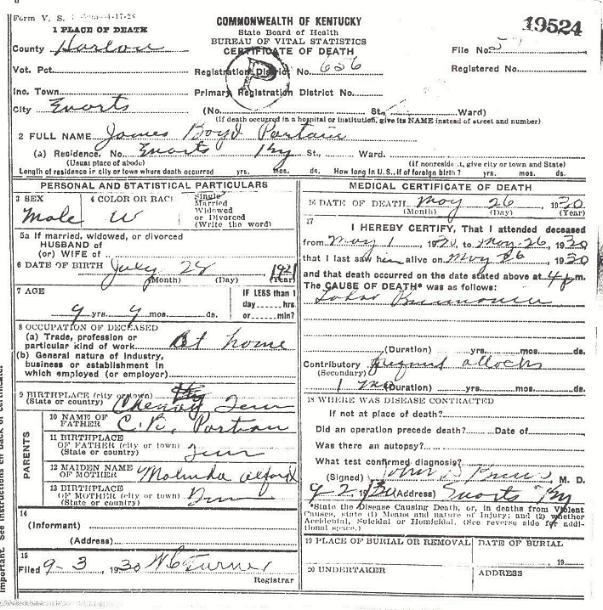 Form V. S.
COMMONWEALTH OF KENTUCKY
19524
1 PLACE OF DEATH
State Board of Health
BUREAU OF VITAL STATISTICS
CERTIFICATE OF DEATH
County Harlan
File No. 5
Vot. Pct.
Registration District No. 656
Registered No.
Inc. Town
Primary Registration District No.
City Evarts
(No. St., Ward)
(If death occurred in a hospital or institution, give its NAME instead of street and number)
2 FULL NAME James Boyd Partain
(a) Residence. No. Evarts Ky St., Ward.
(Usual place of abode)
(If nonresident, give city or town and State)
Length of residence in city or town where death occurred yrs. mos. ds. How long in U.S., if of foreign birth? yrs. mos. ds.
PERSONAL AND STATISTICAL PARTICULARS
3 SEX Male
4 COLOR OR RACE W
Single
Married
Widowed
or Divorced
(Write the word)
5a If married, widowed, or divorced
HUSBAND of
(or) WIFE of
6 DATE OF BIRTH July 28 1921
(Month) (Day) (Year)
7 AGE
9 yrs. 9 mos. ds.
IF LESS than 1
day hrs.
or min?
8 OCCUPATION OF DECEASED
(a) Trade, profession or
particular kind of work At home
(b) General nature of industry,
business or establishment in
which employed (or employer)
9 BIRTHPLACE (city or town)
(State or country) Tenn
PARENTS
10 NAME OF
FATHER C. K. Partain
11 BIRTHPLACE
OF FATHER (city or town)
(State or country) Tenn
12 MAIDEN NAME
OF MOTHER Malinda Alford
13 BIRTHPLACE
OF MOTHER (city or town)
(State or country) Tenn
14
(Informant)
(Address)
15
Filed 9-3, 1930 W C Turner
Registrar
MEDICAL CERTIFICATE OF DEATH
16 DATE OF DEATH May 26, 1930
(Month) (Day) (Year)
17
I HEREBY CERTIFY, That I attended deceased
from May 1, 1930, to May 26, 1930
that I last saw him alive on May 26, 1930
and that death occurred on the date stated above at 4 p.m.
The CAUSE OF DEATH* was as follows:
Lobar Pneumonia
(Duration) yrs. mos. ds.
Contributory
(Secondary)
1 mo (Duration) yrs. mos. ds.
18 WHERE WAS DISEASE CONTRACTED
If not at place of death?
Did an operation precede death? Date of
Was there an autopsy?
What test confirmed diagnosis?
(Signed) M. D.
9-2, 1930 (Address) Evarts Ky
*State the Disease Causing Death, or, in deaths from Violent
Causes, state (1) Means and nature of Injury; and (2) whether
Accidental, Suicidal or Homicidal. (See reverse side for addi-
tional space.)
19 PLACE OF BURIAL OR REMOVAL
DATE OF BURIAL
19
20 UNDERTAKER
ADDRESS
important. See instructions on back of certificate